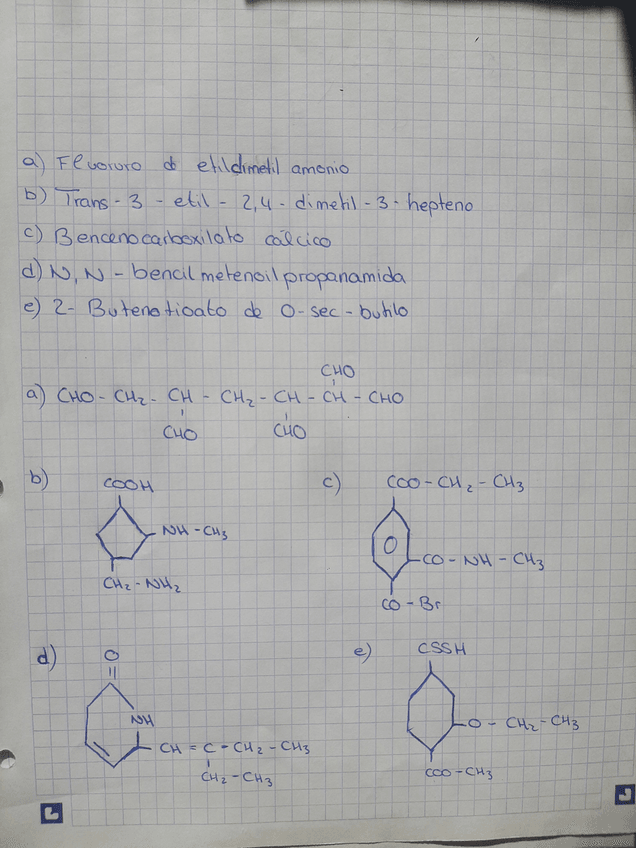 a) Fluoruro de etildimetil amonio
b) Trans - 3 - etil - 2,4 - dimetil - 3 - hepteno
c) Bencenocarboxilato cálcico
d) N, N - bencil metenoil propanamida
e) 2 - Butenotioato de O-sec-butilo
CHO
a) CHO - CH2 - CH - CH2 - CH - CH - CHO
CHO CHO
b) COOH c) COO - CH2 - CH3
NH - CH3
CO - NH - CH3
CH2 - NH2
CO - Br
d) O e) CSSH
NH
O - CH2 - CH3
CH = C - CH2 - CH3
CH2 - CH3 COO - CH3